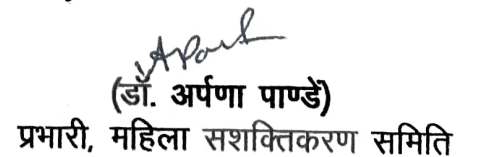 (डॉ. अर्पणा पाण्डें)
प्रभारी, महिला सशक्तिकरण समिति